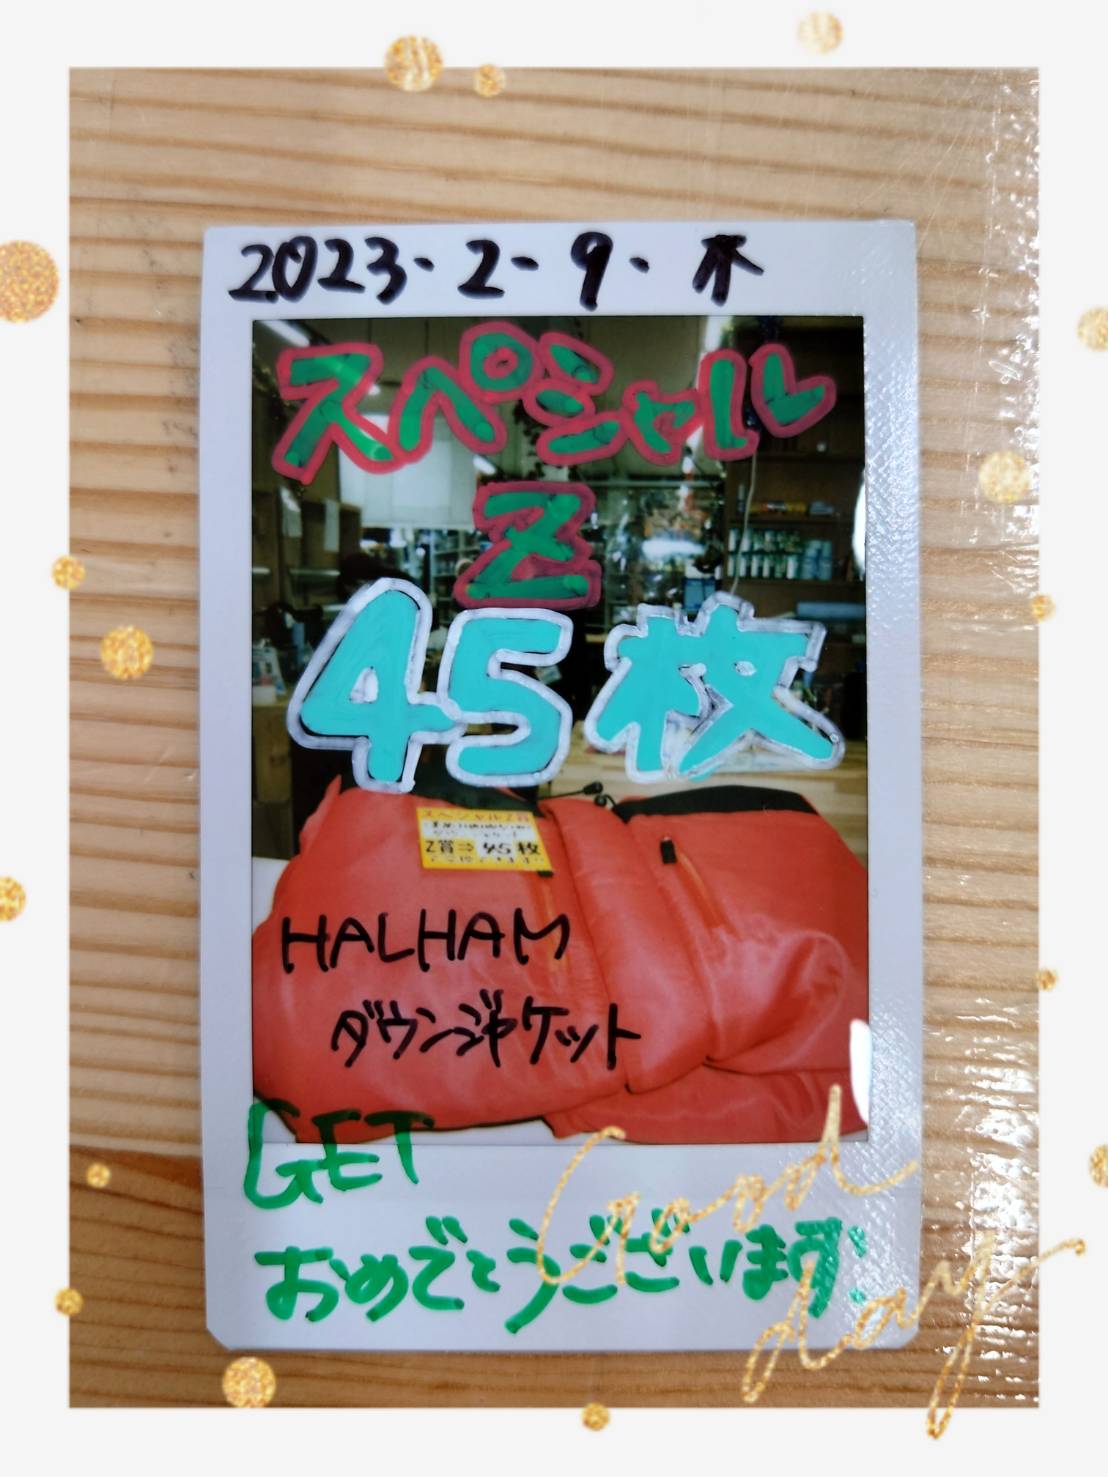 2023・2・9・木
スペシャル
Z
45枚
スペシャルZ賞
Z賞⇒45枚
HALHAM
ダウンジャケット
GET
おめでとうございます!
Good
day